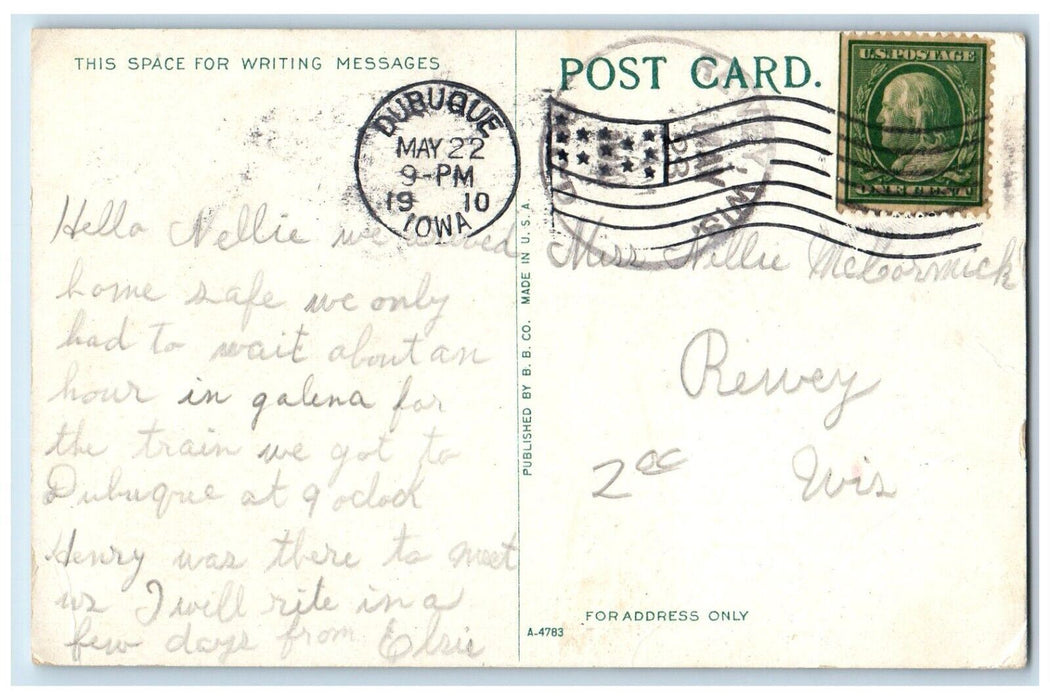 THIS SPACE FOR WRITING MESSAGES
DUBUQUE
MAY 22
9-PM
19 10
IOWA
Hello Nellie we arrived
home safe we only
had to wait about an
hour in galena for
the train we got to
Dubuque at 9 oclock
Henry was there to meet
us I will rite in a
few days from Elsie
PUBLISHED BY B. B. CO. MADE IN U. S. A.
POST CARD.
U.S. POSTAGE
ONE CENT
WIS.
Miss Nellie McCormick
Rewey
Wis
FOR ADDRESS ONLY
A-4783